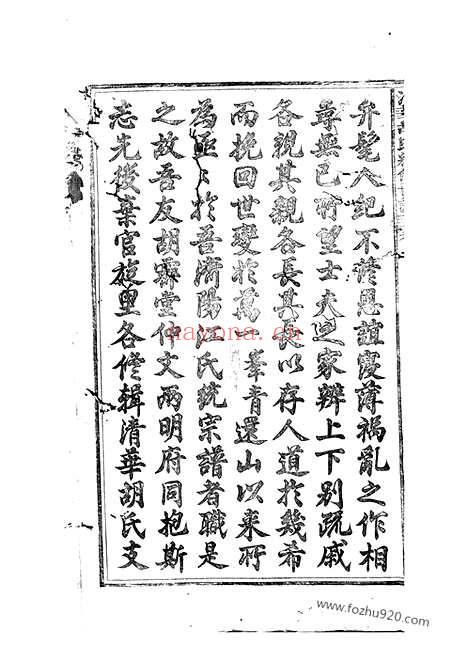 弁髦人紀不修恩誼寖薄禍亂之作相
尋無已所望士夫之家辨上下別疏戚
各親其親各長其長以存人道於幾希
而挽回世變於萬一峯青還山以來所
為區〻於吾濟陽江氏統宗譜者職是
之故吾友胡霽堂仲文兩明府同抱斯
志先後棄官旋里各修輯清華胡氏支
nayona.cn
www.fozhu920.com